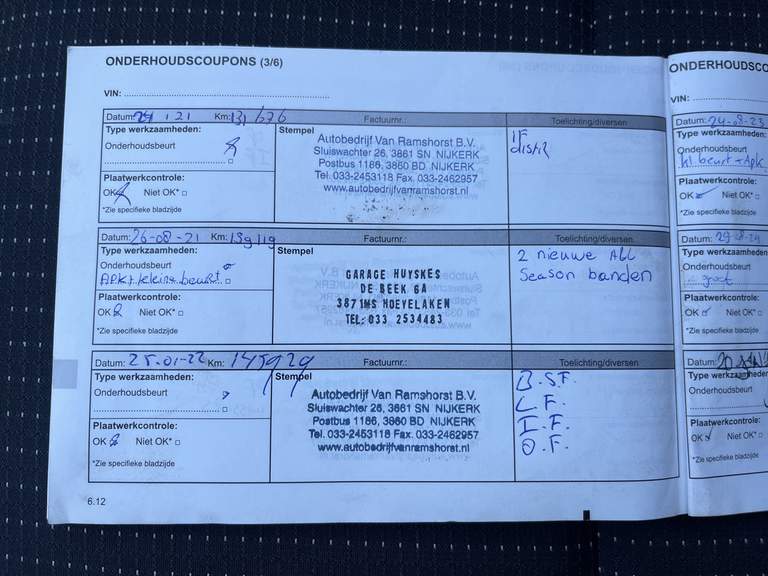 ONDERHOUDSCOUPONS (3/6)
VIN:
Datum: 21 Km: 131676 Factuurnr.: Toelichting/diversen:
Type werkzaamheden: Stempel
Onderhoudsbeurt
Plaatwerkcontrole:
OK Niet OK*
*Zie specifieke bladzijde
Autobedrijf Van Ramshorst B.V.
Sluiswachter 26, 3861 SN NIJKERK
Postbus 1186, 3860 BD NIJKERK
Tel. 033-2453118 Fax. 033-2462957
www.autobedrijfvanramshorst.nl
IF
Datum: 26-08-21 Km: 139119 Factuurnr.: Toelichting/diversen:
Type werkzaamheden: Stempel
Onderhoudsbeurt
APK+kleine beurt
Plaatwerkcontrole:
OK Niet OK*
*Zie specifieke bladzijde
GARAGE HUYSKES
DE BEEK 6A
3871MS HOEVELAKEN
TEL: 033 2534483
2 nieuwe All
Season banden
Datum: 25-01-22 Km: 145929 Factuurnr.: Toelichting/diversen:
Type werkzaamheden: Stempel
Onderhoudsbeurt
Plaatwerkcontrole:
OK Niet OK*
*Zie specifieke bladzijde
Autobedrijf Van Ramshorst B.V.
Sluiswachter 26, 3861 SN NIJKERK
Postbus 1186, 3860 BD NIJKERK
Tel. 033-2453118 Fax. 033-2462957
www.autobedrijfvanramshorst.nl
B.S.F.
L F.
I.F.
O.F.
6.12
ONDERHOUDSCO
VIN:
Datum: 24-08-23
Type werkzaamheden:
Onderhoudsbeurt
kl beurt + Apk
Plaatwerkcontrole:
OK Niet OK*
*Zie specifieke bladzijde
Datum:
Type werkzaamheden:
Onderhoudsbeurt
groot
Plaatwerkcontrole:
OK Niet OK*
*Zie specifieke bladzijde
Datum: 20
Type werkzaamheden
Onderhoudsbeurt
Plaatwerkcontrole:
OK Niet OK*
*Zie specifieke bladzijde